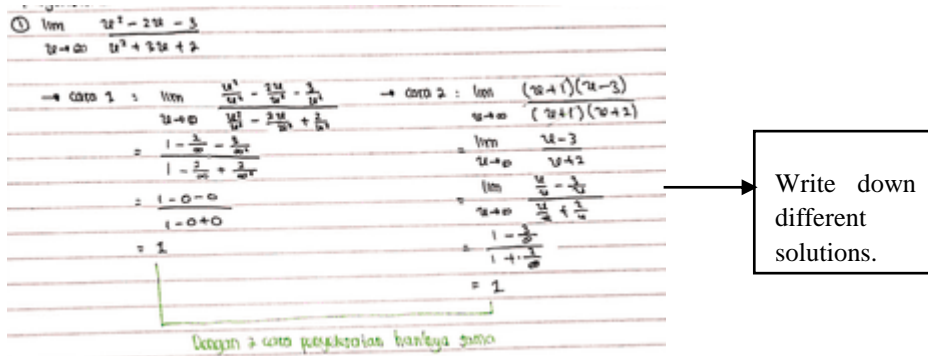 ① lim x² - 2x - 3
x→∞ x² + 3x + 2
→ cara 1 : lim x²/x² - 2x/x² - 3/x²
x→∞ x²/x² - 3x/x² + 2/x²
= 1 - 2/∞ - 3/∞²
1 - 3/∞ + 2/∞²
= 1 - 0 - 0
1 - 0 + 0
= 1
→ cara 2 : lim (x+1)(x-3)
x→∞ (x+1)(x+2)
= lim x-3
x→∞ x+2
= lim x/x - 3/x
x→∞ x/x + 2/x
= 1 - 3/∞
1 + 2/∞
= 1
Dengan 2 cara sama
Write down
different
solutions.